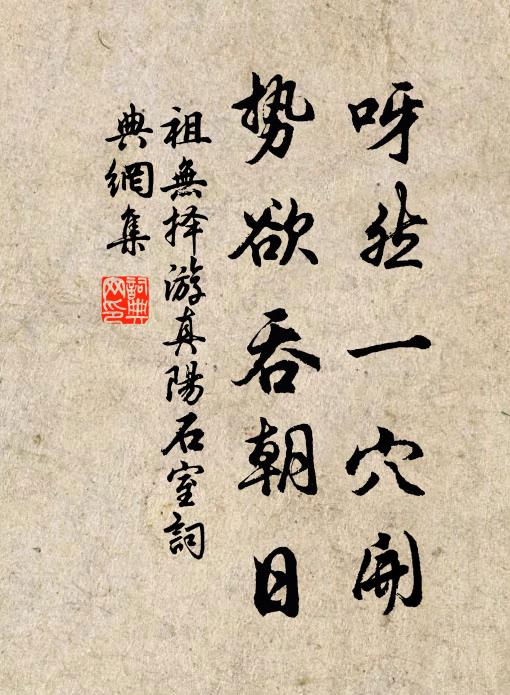 呀然一穴開
势欲吞朝日
祖無择游真陽石室詞
典網集
詞典網印